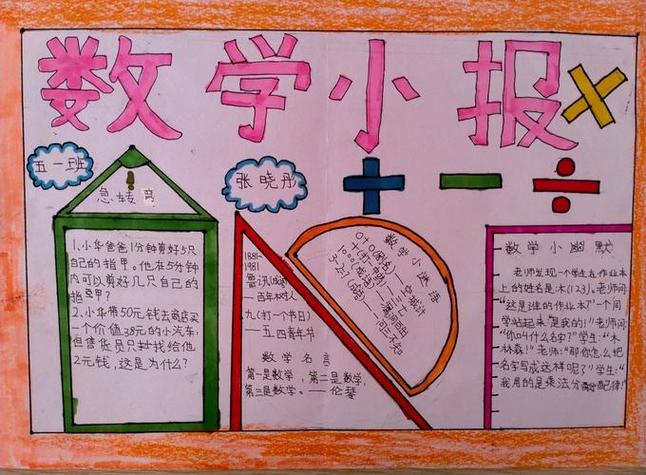 数学小报
五一班
张晓彤
急转弯
1.小华爸爸1分钟剪好5只
自己的指甲。他在5分钟
内可以剪好几只自己的
指甲?
2.小华带50元钱去商店买
一个价值38元的小汽车,
但售货员只找给他
2元钱,这是为什么?
1881-
1981
——百年树人
九(打一个节日)
——五四青年节
数学名言
第一是数学,第二是数学,
第三是数学。——伦琴
数学小谜语
0+0
——空城计
数学小幽默
老师发现一个学生在作业本
上的姓名是:木(1+2+3)。老师问:
“这是谁的作业本?”一个同
学站起来:“是我的!”老师问:
“你叫什么名字?”学生:“木
林森!”老师:“那你怎么把
名字写成这样呢?”学生:“
我用的是乘法分配律!